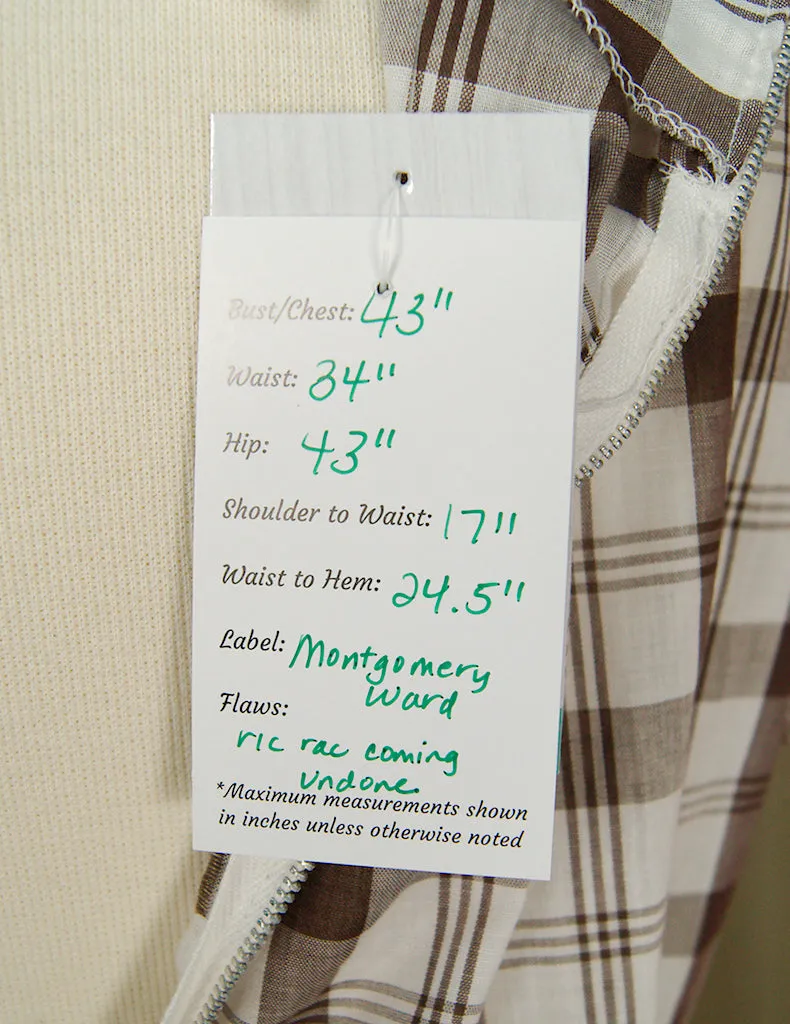 Bust/Chest: 43"
Waist: 34"
Hip: 43"
Shoulder to Waist: 17"
Waist to Hem: 24.5"
Label: Montgomery
Ward
Flaws:
ric rac coming
undone.
*Maximum measurements shown
in inches unless otherwise noted